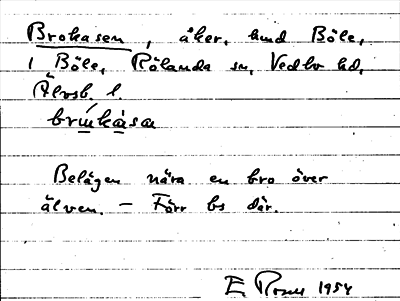 Brokasen, åker, hmd Böle,
1 Böle, Rölanda sn, Vedbo hd,
Älvsb. l.
brukåsa
Belägen nära en bro över
älven. – Förr bs där.
E 1954